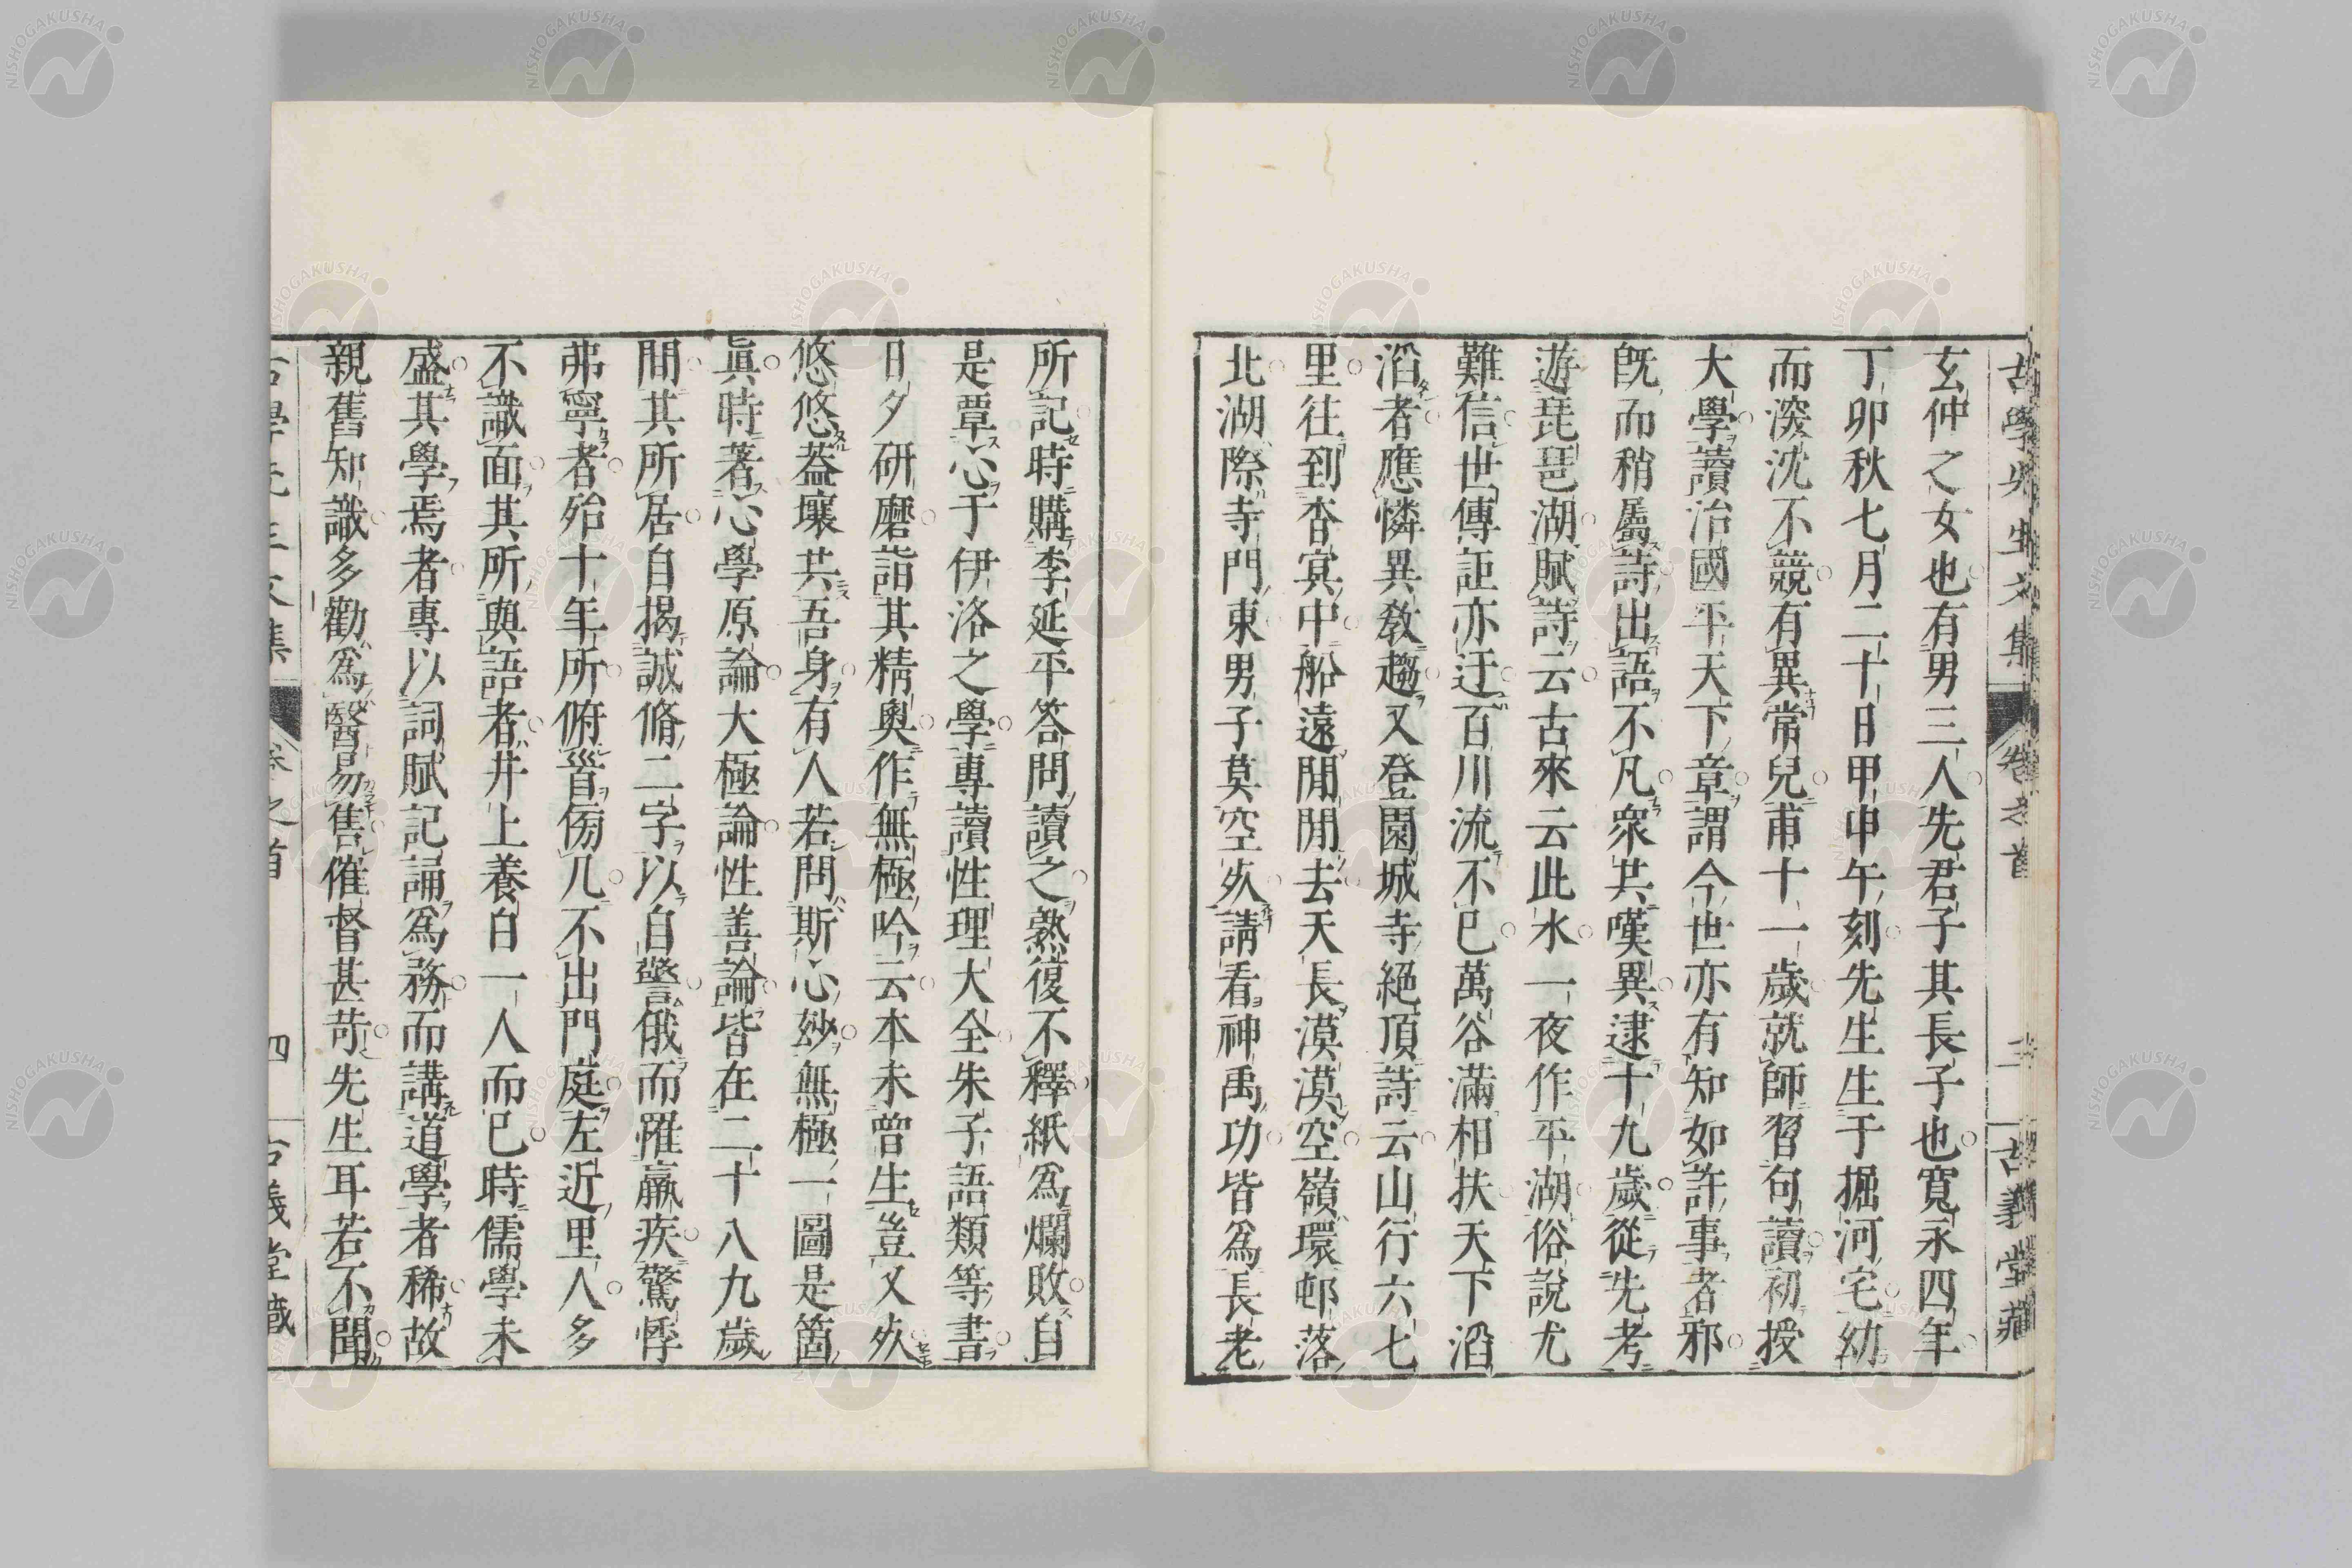 古學先生文集 卷之首 三 古義堂藏
玄仲之女也有男三人先君子其長子也寛永四年
丁卯秋七月二十日甲申午刻先生生于掘河宅幼
而深沈不競有異常兒甫十一歲就師習句讀初授
大學讀治國平天下章謂今世亦有知如許事者邪
旣而稍屬詩出語不凡衆共嘆異逮十九歲從先考
遊琵琶湖賦詩云古來云此水一夜作平湖俗說尤
難信世傳詎亦迂百川流不已萬谷滿相扶天下滔
滔者應憐異敎趨又登園城寺絕頂詩云山行六七
里往到杳冥中船遠閒閒去天長漠漠空嶺環邨落
北湖際寺門東男子莫空死請看神禹功皆爲長老
所記時購李延平答問讀之熟復不釋紙爲爛敗自
是覃心于伊洛之學專讀性理大全朱子語類等書
日夕研磨詣其精奧作無極吟云本未曾生豈又死
悠悠葢壤共吾身有人若問斯心妙無極一圖是箇
眞時著心學原論大極論性善論皆在二十八九歲
間其所居自揭誠脩二字以自警俄而罹羸疾驚悸
弗寧者殆十年所俯首傍几不出門庭左近里人多
不識面其所與語者井上養白一人而已時儒學未
盛其學焉者專以詞賦記誦爲務而講道學者稀故
親舊知識多勸爲醫易售催督甚苛先生耳若不聞
古學先生文集 卷之首 四 古義堂藏
NISHOGAKUSHA